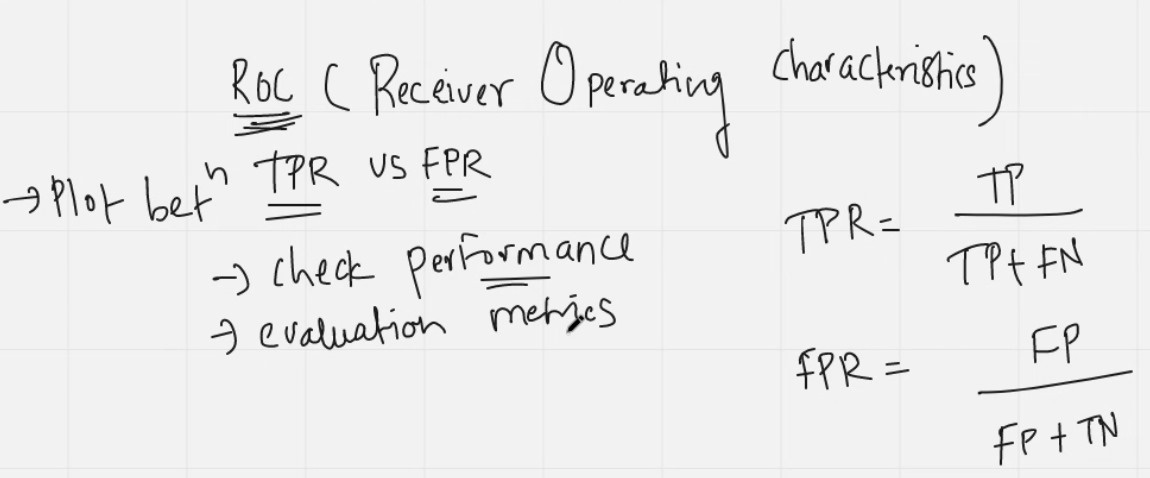 ROC ( Receiver Operating Characteristics)
→ Plot betⁿ TPR vs FPR
→ check performance
→ evaluation metrics
TPR = TP / TP + FN
FPR = FP / FP + TN